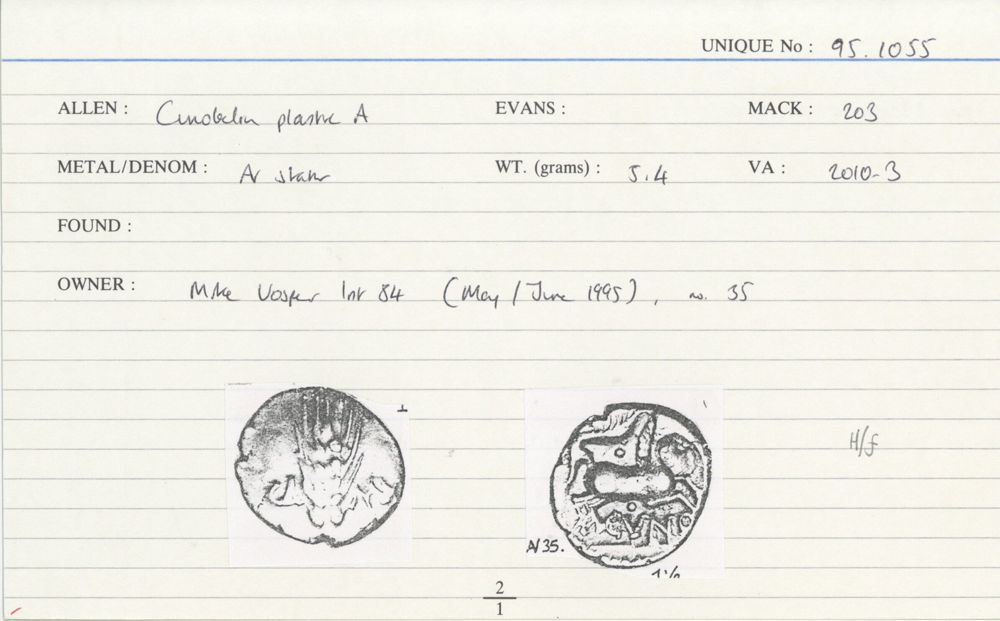 UNIQUE No : 95.1055
ALLEN : Cunobelin plastic A EVANS : MACK : 203
METAL/DENOM : AV stater WT. (grams) : 5.4 VA : 2010-3
FOUND :
OWNER : Mike Vosper lnr 84 (May / June 1995), no. 35
H/f
CVNO
A/35.
2
1